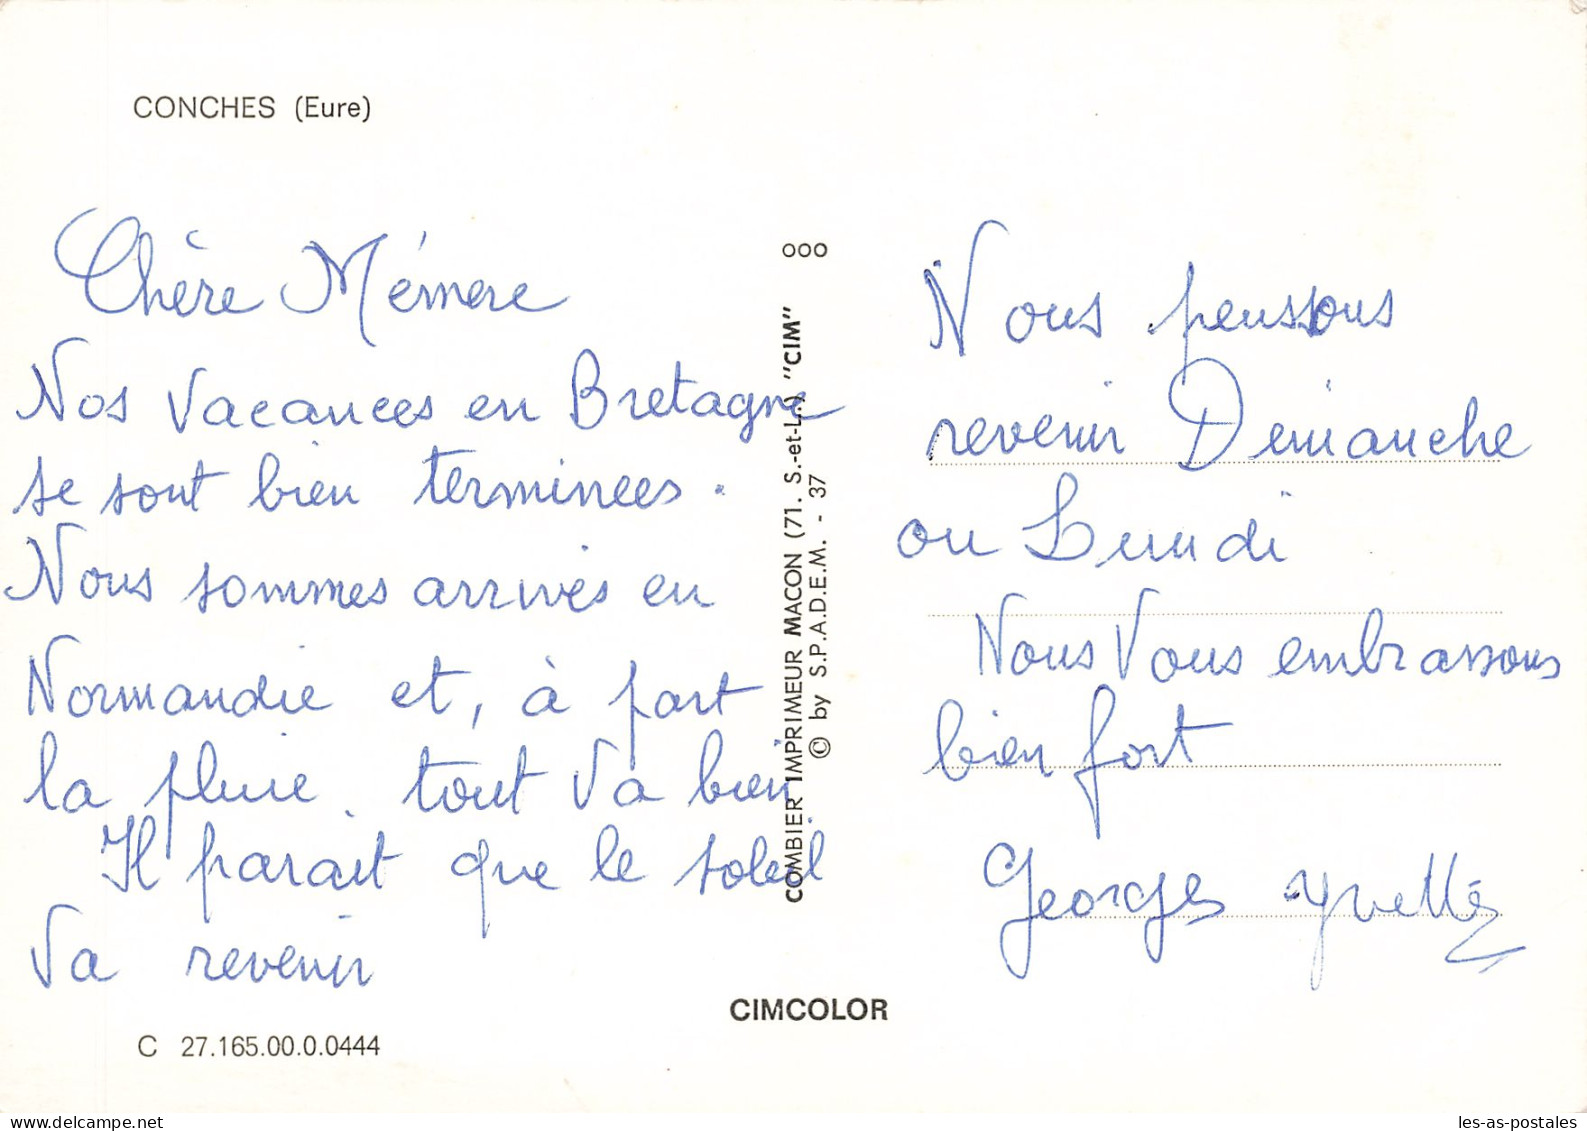 CONCHES (Eure)
Chère Mémere
Nos vacances en Bretagne
se sont bien terminees.
Nous sommes arrivés en
Normandie et, à part
la pluie, tout va bien
Il parait que le soleil
va revenir
C 27.165.00.0.0444
ooo
COMBIER IMPRIMEUR MACON (71. S.-et-L.) "CIM"
© by S.P.A.D.E.M. - 37
CIMCOLOR
Nous penssons
revenir Dimanche
ou Lundi
Nous Vous embrassons
bien fort
Georges Yvette
les-as-postales